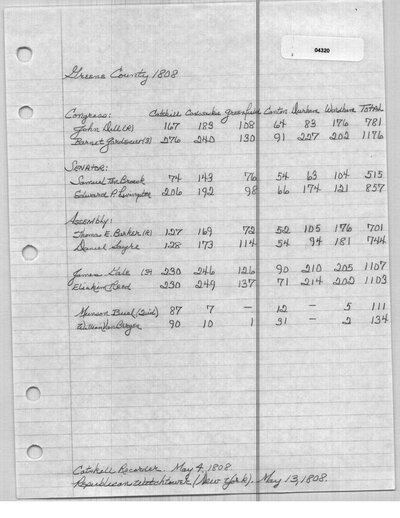 04320
Greene County 1808
Congress: Catskill Coxsackie Greenfield Canton Durham Windham TOTAL
John Dill (R) 167 183 108 64 83 176 781
Barnet Gardenier (F) 276 240 130 91 227 202 1176
SENATOR:
Samuel Ten Broeck 74 143 76 54 63 104 515
Edward P. Livingston 206 192 98 66 174 121 857
ASSEMBLY:
Thomas E. Barker (R) 127 169 72 52 105 176 701
Daniel Sayre 128 173 114 54 94 181 744
James Hale 230 246 126 90 210 205 1107
Eliakim Reed 230 249 137 71 214 202 1103
Munson Buel (Quid) 87 7 — 12 — 5 111
William Van Bergen 90 10 1 31 — 2 134
Catskill Recorder. May 4, 1808.
Republican Watchtower (New York). May 13, 1808.